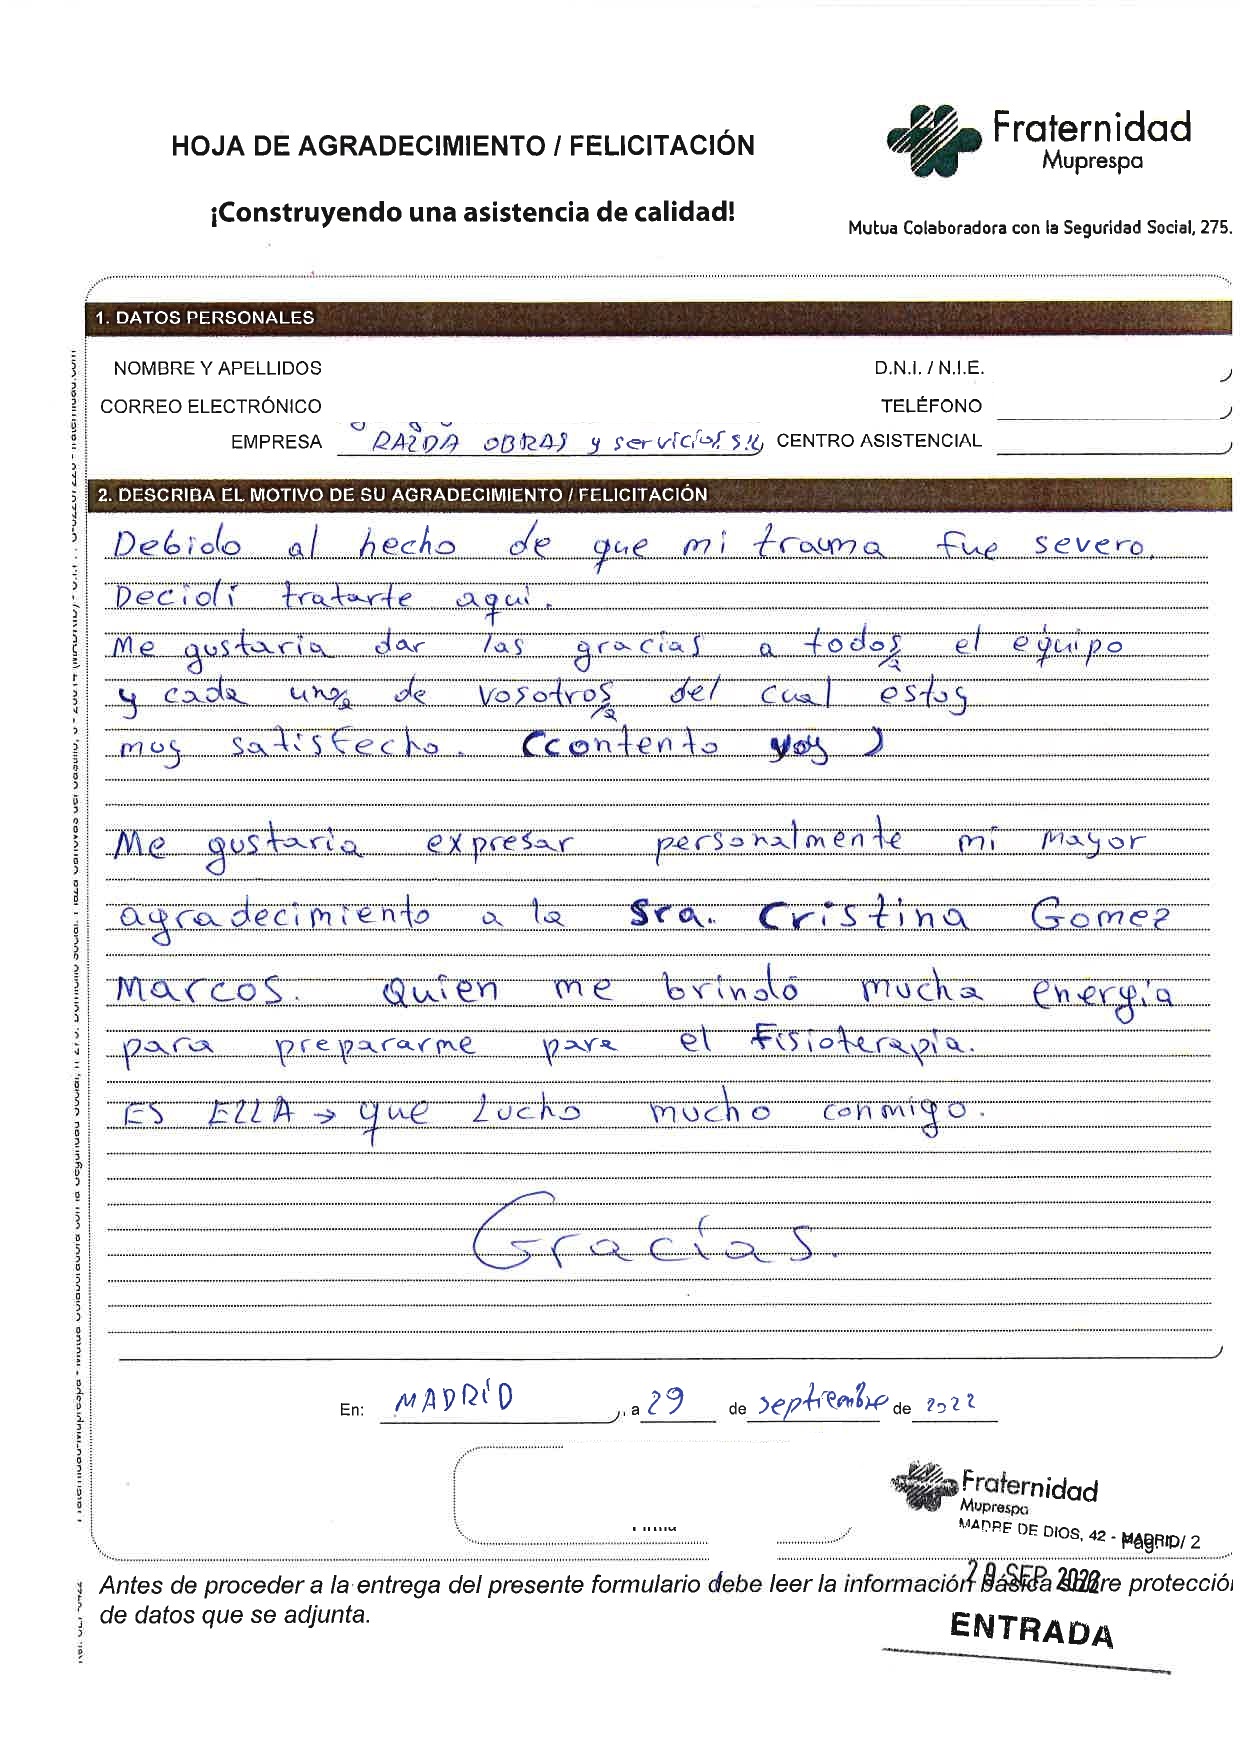 HOJA DE AGRADECIMIENTO / FELICITACIÓN
¡Construyendo una asistencia de calidad!
Fraternidad
Muprespa
Mutua Colaboradora con la Seguridad Social, 275.
1. DATOS PERSONALES
NOMBRE Y APELLIDOS
D.N.I. / N.I.E.
CORREO ELECTRÓNICO
TELÉFONO
EMPRESA RAIDA OBRAS y servicios S.L, CENTRO ASISTENCIAL
2. DESCRIBA EL MOTIVO DE SU AGRADECIMIENTO / FELICITACIÓN
Debido al hecho de que mi trauma fue severo.
Decidí tratarte aquí.
Me gustaría dar las gracias a todos/a el equipo
y cada unos/a de vosotros/a del cual estoy
muy satisfecho. (contento voy)
Me gustaría expresar personalmente mi mayor
agradecimiento a la Sra. Cristina Gomez
Marcos. Quien me brindó mucha energía
para prepararme para el Fisioterapia.
ES ELLA → que Lucho mucho conmigo.
Gracias.
En: MADRID, a 29 de septiembre de 2022
Fraternidad
Muprespa
MADRE DE DIOS, 42 - MADRID
Pág. / 2
29 SEP 2022
ENTRADA
Antes de proceder a la entrega del presente formulario debe leer la información básica sobre protecció
de datos que se adjunta.